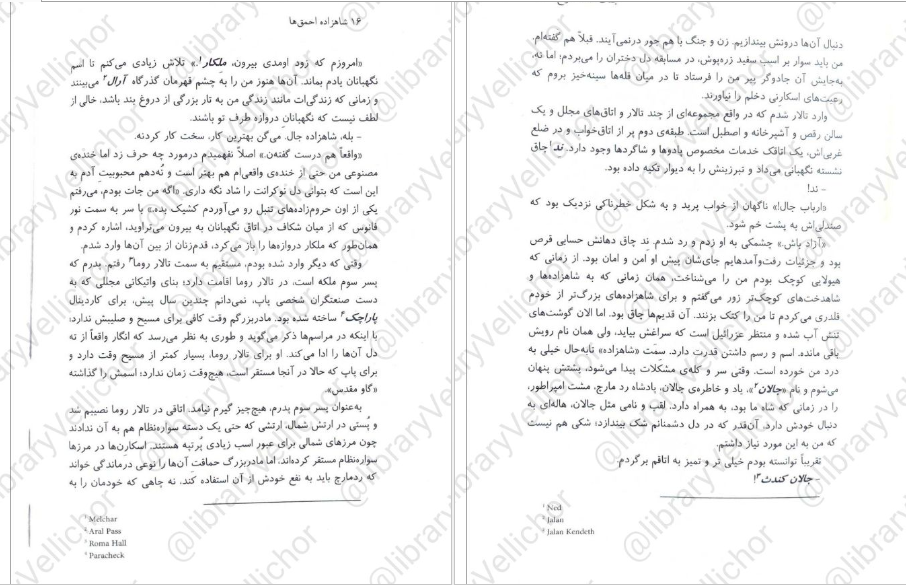 ۱۶ شاهزاده احمق‌ها
«امروزم که زود اومدی بیرون، ملکار¹.» تلاش زیادی می‌کنم تا اسم
نگهبانان یادم بماند. آن‌ها هنوز من را به چشم قهرمان گذرگاه آرال² می‌بینند
و زمانی که زندگی‌ات مانند زندگی من به تار بزرگی از دروغ بند باشد، خالی از
لطف نیست که نگهبانان دروازه طرف تو باشند.
- بله، شاهزاده جال. می‌گن بهترین کار، سخت کار کردنه.
«واقعاً هم درست گفته‌ن.» اصلاً نفهمیدم درمورد چه حرف زد اما خنده‌ی
مصنوعی من حتی از خنده‌ی واقعی‌ام هم بهتر است و نُه‌دهم محبوبیت آدم به
این است که بتوانی دل نوکرانت را شاد نگه داری. «اگه من جات بودم، می‌رفتم
یکی از اون حروم‌زاده‌های تنبل رو می‌آوردم کشیک بده.» با سر به سمت نور
فانوس که از میان شکاف در اتاق نگهبانان به بیرون می‌تراوید، اشاره کردم و
همان‌طور که ملکار دروازه‌ها را باز می‌کرد، قدم‌زنان از بین آن‌ها وارد شدم.
وقتی که دیگر وارد شده بودم، مستقیم به سمت تالار روما³ رفتم. پدرم که
پسر سوم ملکه است، در تالار روما اقامت دارد؛ بنای واتیکانی مجللی که به
دست صنعتگران شخصی پاپ، نمی‌دانم چندین سال پیش، برای کاردینال
پاراچک⁴ ساخته شده بود. مادربزرگم وقت کافی برای مسیح و صلیبش ندارد؛
با اینکه در مراسم‌ها ذکر می‌گوید و طوری به نظر می‌رسد که انگار واقعاً از ته
دل آن‌ها را ادا می‌کند. او برای تالار روما، بسیار کمتر از مسیح وقت دارد و
برای پاپ که حالا در آنجا مستقر است، هیچ‌وقت زمان ندارد؛ اسمش را گذاشته
«گاو مقدس».
به‌عنوان پسر سوم پدرم، هیچ‌چیز گیرم نیامد. اتاقی در تالار روما نصیبم شد
و پُستی در ارتش شمال، ارتشی که حتی یک دسته سواره‌نظام هم به آن ندادند
چون مرزهای شمالی برای عبور اسب زیادی پُرتپه هستند. اسکارن‌ها در مرزها
سواره‌نظام مستقر کرده‌اند، اما مادربزرگ حماقت آن‌ها را نوعی درماندگی خواند
که ردمارچ باید به نفع خودش از آن استفاده کند، نه چاهی که خودمان را به
¹ Melchar
² Aral Pass
³ Roma Hall
⁴ Paracheck
دنبال آن‌ها درونش بیندازیم. زن و جنگ با هم جور درنمی‌آیند. قبلاً هم گفته‌ام.
من باید سوار بر اسب سفید زره‌پوش، در مسابقه دل دختران را می‌بردم؛ اما نه،
به‌جایش آن جادوگر پیر من را فرستاد تا در میان قله‌ها سینه‌خیز بروم که
رعیت‌های اسکارنی دخلم را نیاورند.
وارد تالار شدم که در واقع مجموعه‌ای از چند تالار و اتاق‌های مجلل و یک
سالن رقص و آشپزخانه و اصطبل است. طبقه‌ی دوم پر از اتاق‌خواب و در ضلع
غربی‌اش، یک اتاقک خدمات مخصوص پادوها و شاگردها وجود دارد. ند¹ چاق
نشسته نگهبانی می‌داد و تبرزینش را به دیوار تکیه داده بود.
- ند!
«ارباب جال!» ناگهان از خواب پرید و به شکل خطرناکی نزدیک بود که
صندلی‌اش به پشت خم شود.
«آزاد باش.» چشمکی به او زدم و رد شدم. ند چاق دهانش حسابی قرص
بود و جزئیات رفت‌وآمدهایم جای‌شان پیش او امن و امان بود. از زمانی که
هیولایی کوچک بودم من را می‌شناخت، همان زمانی که به شاهزاده‌ها و
شاهدخت‌های کوچک‌تر زور می‌گفتم و برای شاهزاده‌های بزرگ‌تر از خودم
قلدری می‌کردم تا من را کتک بزنند. آن قدیم‌ها چاق بود. اما الان گوشت‌های
تنش آب شده و منتظر عزرائیل است که سراغش بیاید، ولی همان نام رویش
باقی مانده. اسم و رسم داشتن قدرت دارد. سمَت «شاهزاده» تابه‌حال خیلی به
درد من خورده است. وقتی سر و کله‌ی مشکلات پیدا می‌شود، پشتش پنهان
می‌شوم و نام «جالان²»، یاد و خاطره‌ی جالان، پادشاه رد مارچ، مشت امپراطور،
را در زمانی که شاه ما بود، به همراه دارد. لقب و نامی مثل جالان، هاله‌ای به
دنبال خودش دارد. آن‌قدر که در دل دشمنانم شک بیندازد؛ شکی هم نیست
که من به این مورد نیاز داشتم.
تقریباً توانسته بودم خیلی تر و تمیز به اتاقم برگردم.
- جالان کندث³!
¹ Ned
² Jalan
³ Jalan Kendeth
@libraryVellichor